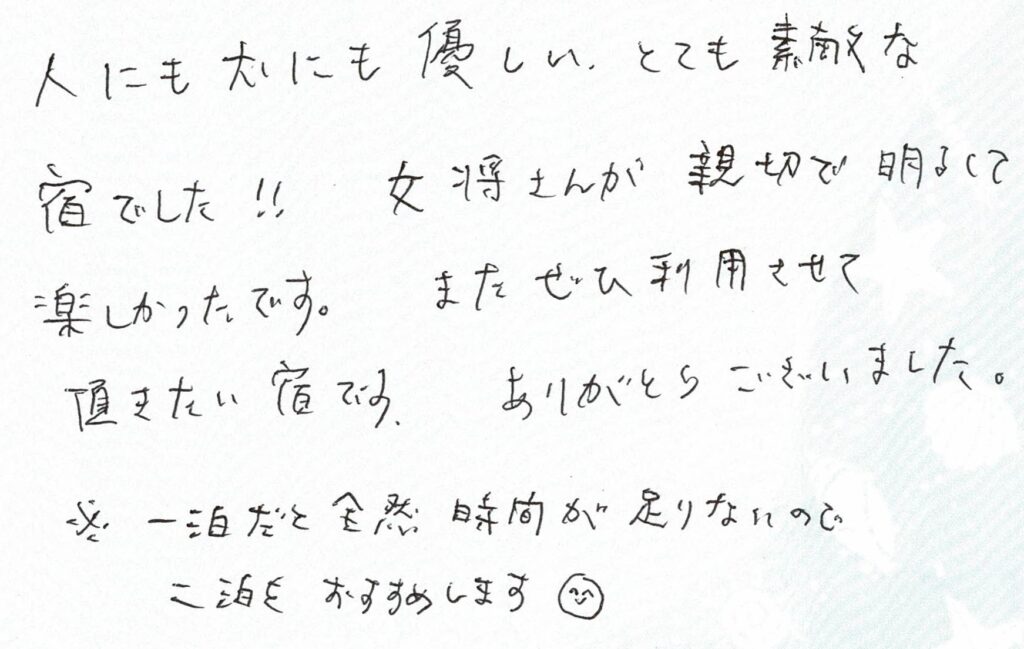 人にも犬にも優しい、とても素敵な
宿でした!! 女将さんが親切で明るくて
楽しかったです。 またぜひ利用させて
頂きたい宿です。 ありがとうございました。
※ 一泊だと全然時間が足りないので
二泊をおすすめします